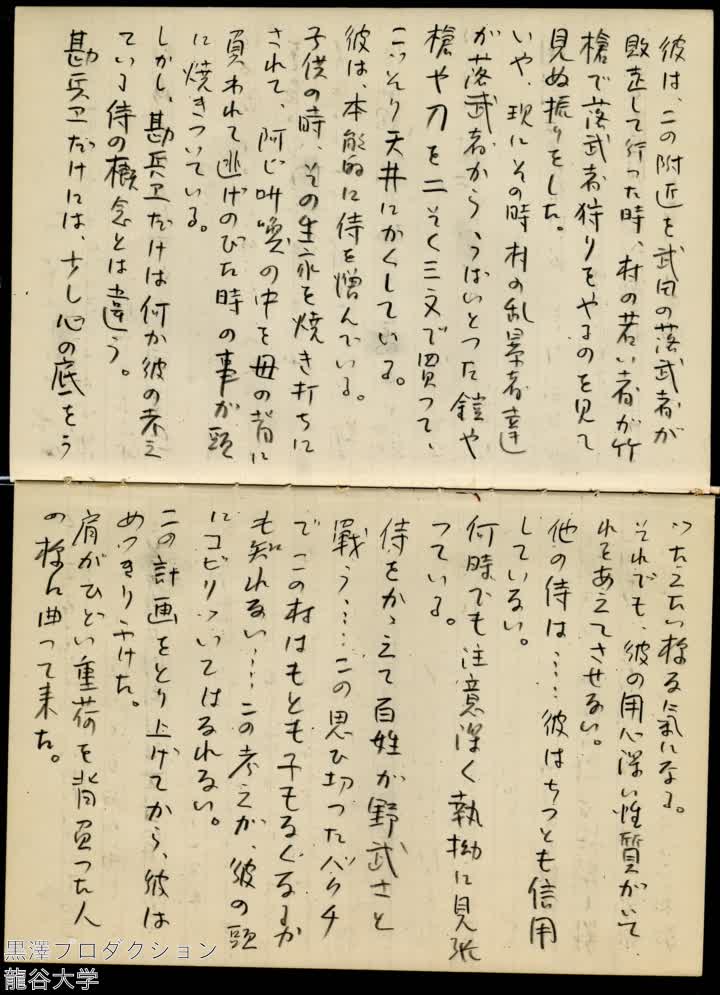 彼は、この附近を武田の落武者が
敗走して行った時、村の若い者が竹
槍で落武者狩りをやるのを見て
見ぬ振りをした。
いや、現にその時村の乱暴者達
が落武者から、うばいとった鎧や
槍や刀を二そく三文で買って、
こっそり天井にかくしている。
彼は、本能的に侍を憎んでいる。
子供の時、その生家を焼き打ちに
されて、阿じ叫喚の中を母の背に
負われて逃げのびた時の事が頭
に焼きついている。
しかし、勘兵ヱだけは何か彼の考え
ている侍の概念とは違う。
勘兵ヱだけには、少し心の底をう
ったえたい様な気になる。
それでも、彼の用心深い性質がいて
れをあえてさせない。
他の侍は……彼はちっとも信用
していない。
何時でも注意深く執拗に見張
っている。
侍をかゝえて百姓が野武士と
戦う……この思ひ切ったバクチ
でこの村はもとも子もなくなるか
も知れない……この考えが、彼の頭
にコビりついてはなれない。
この計画をとり上げてから、彼は
めっきりふけた。
肩がひどい重荷を背負った人
の様に曲って来た。
黒澤プロダクション
龍谷大学